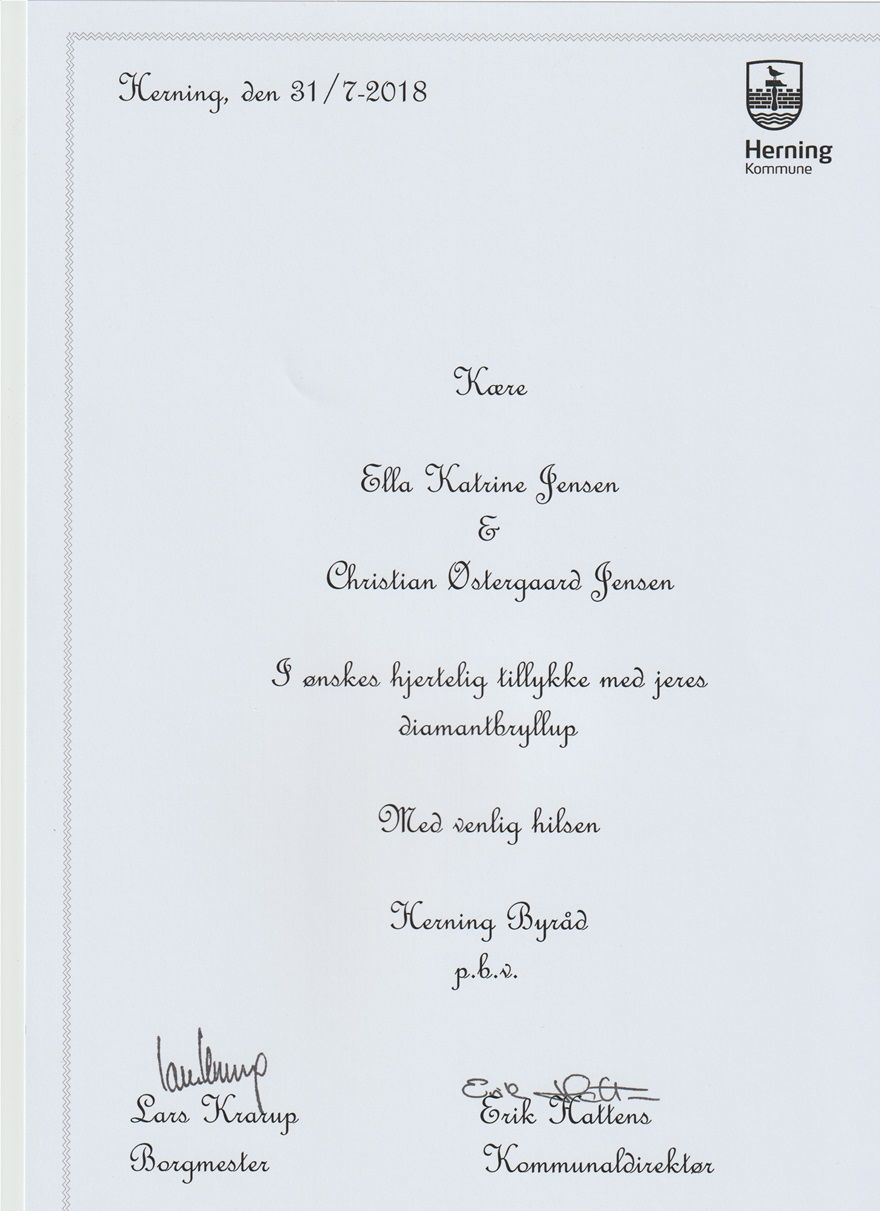 Herning, den 31/7-2018
Herning
Kommune
Kære
Ella Katrine Jensen
&
Christian Østergaard Jensen
I ønskes hjertelig tillykke med jeres
diamantbryllup
Med venlig hilsen
Herning Byråd
p.b.v.
Lars Krarup
Erik Hattens
Borgmester
Kommunaldirektør